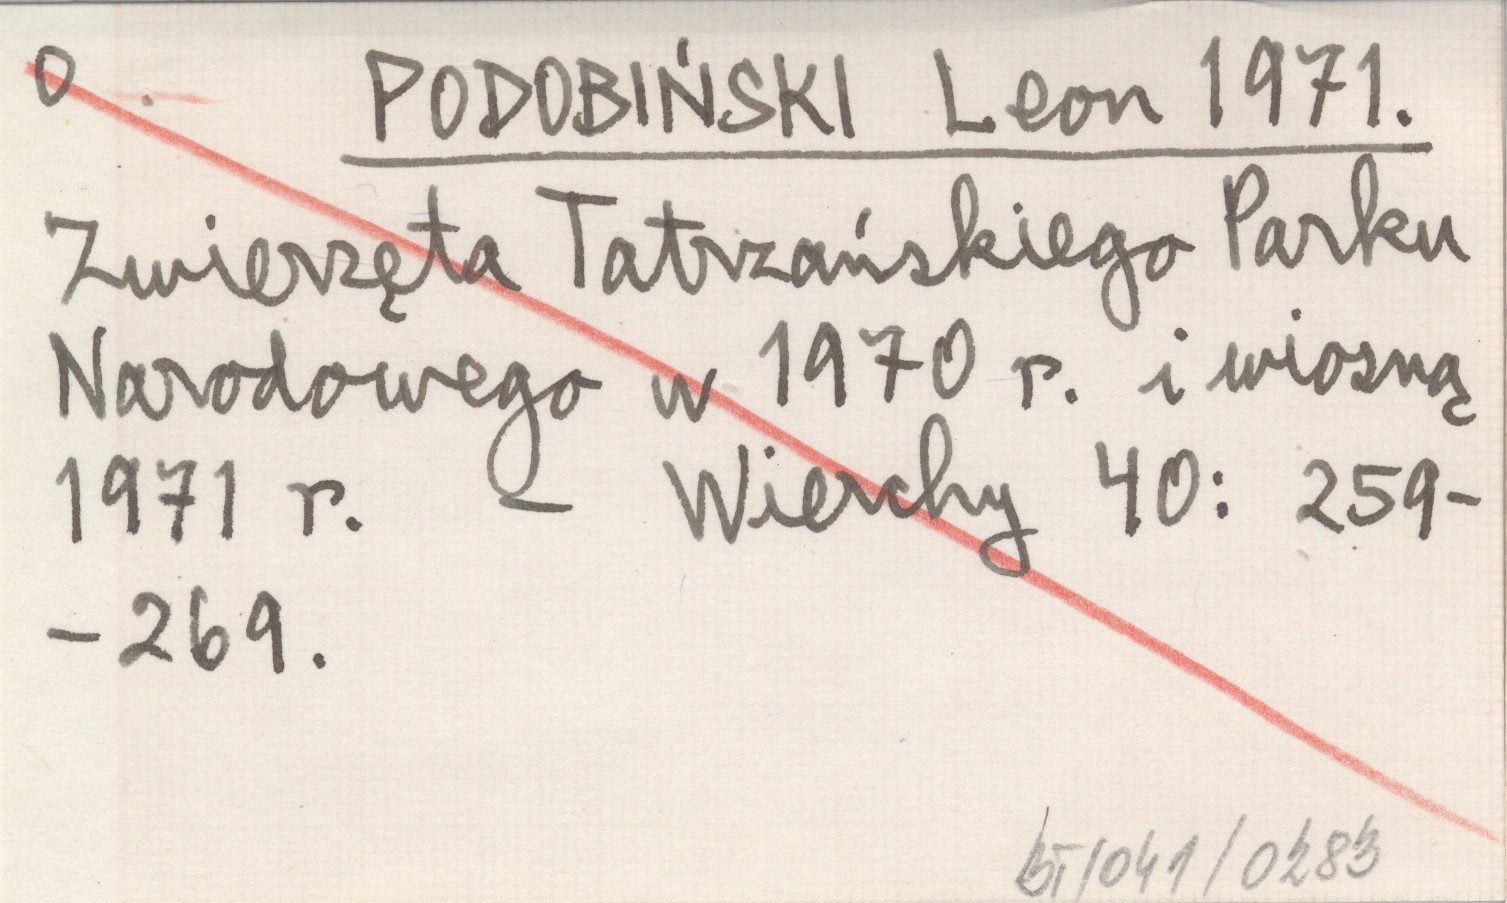 O PODOBIŃSKI Leon 1971.
Zwierzęta Tatrzańskiego Parku
Narodowego w 1970 r. i wiosną
1971 r. – Wierchy 40: 259-
-269.
BT/041/0283